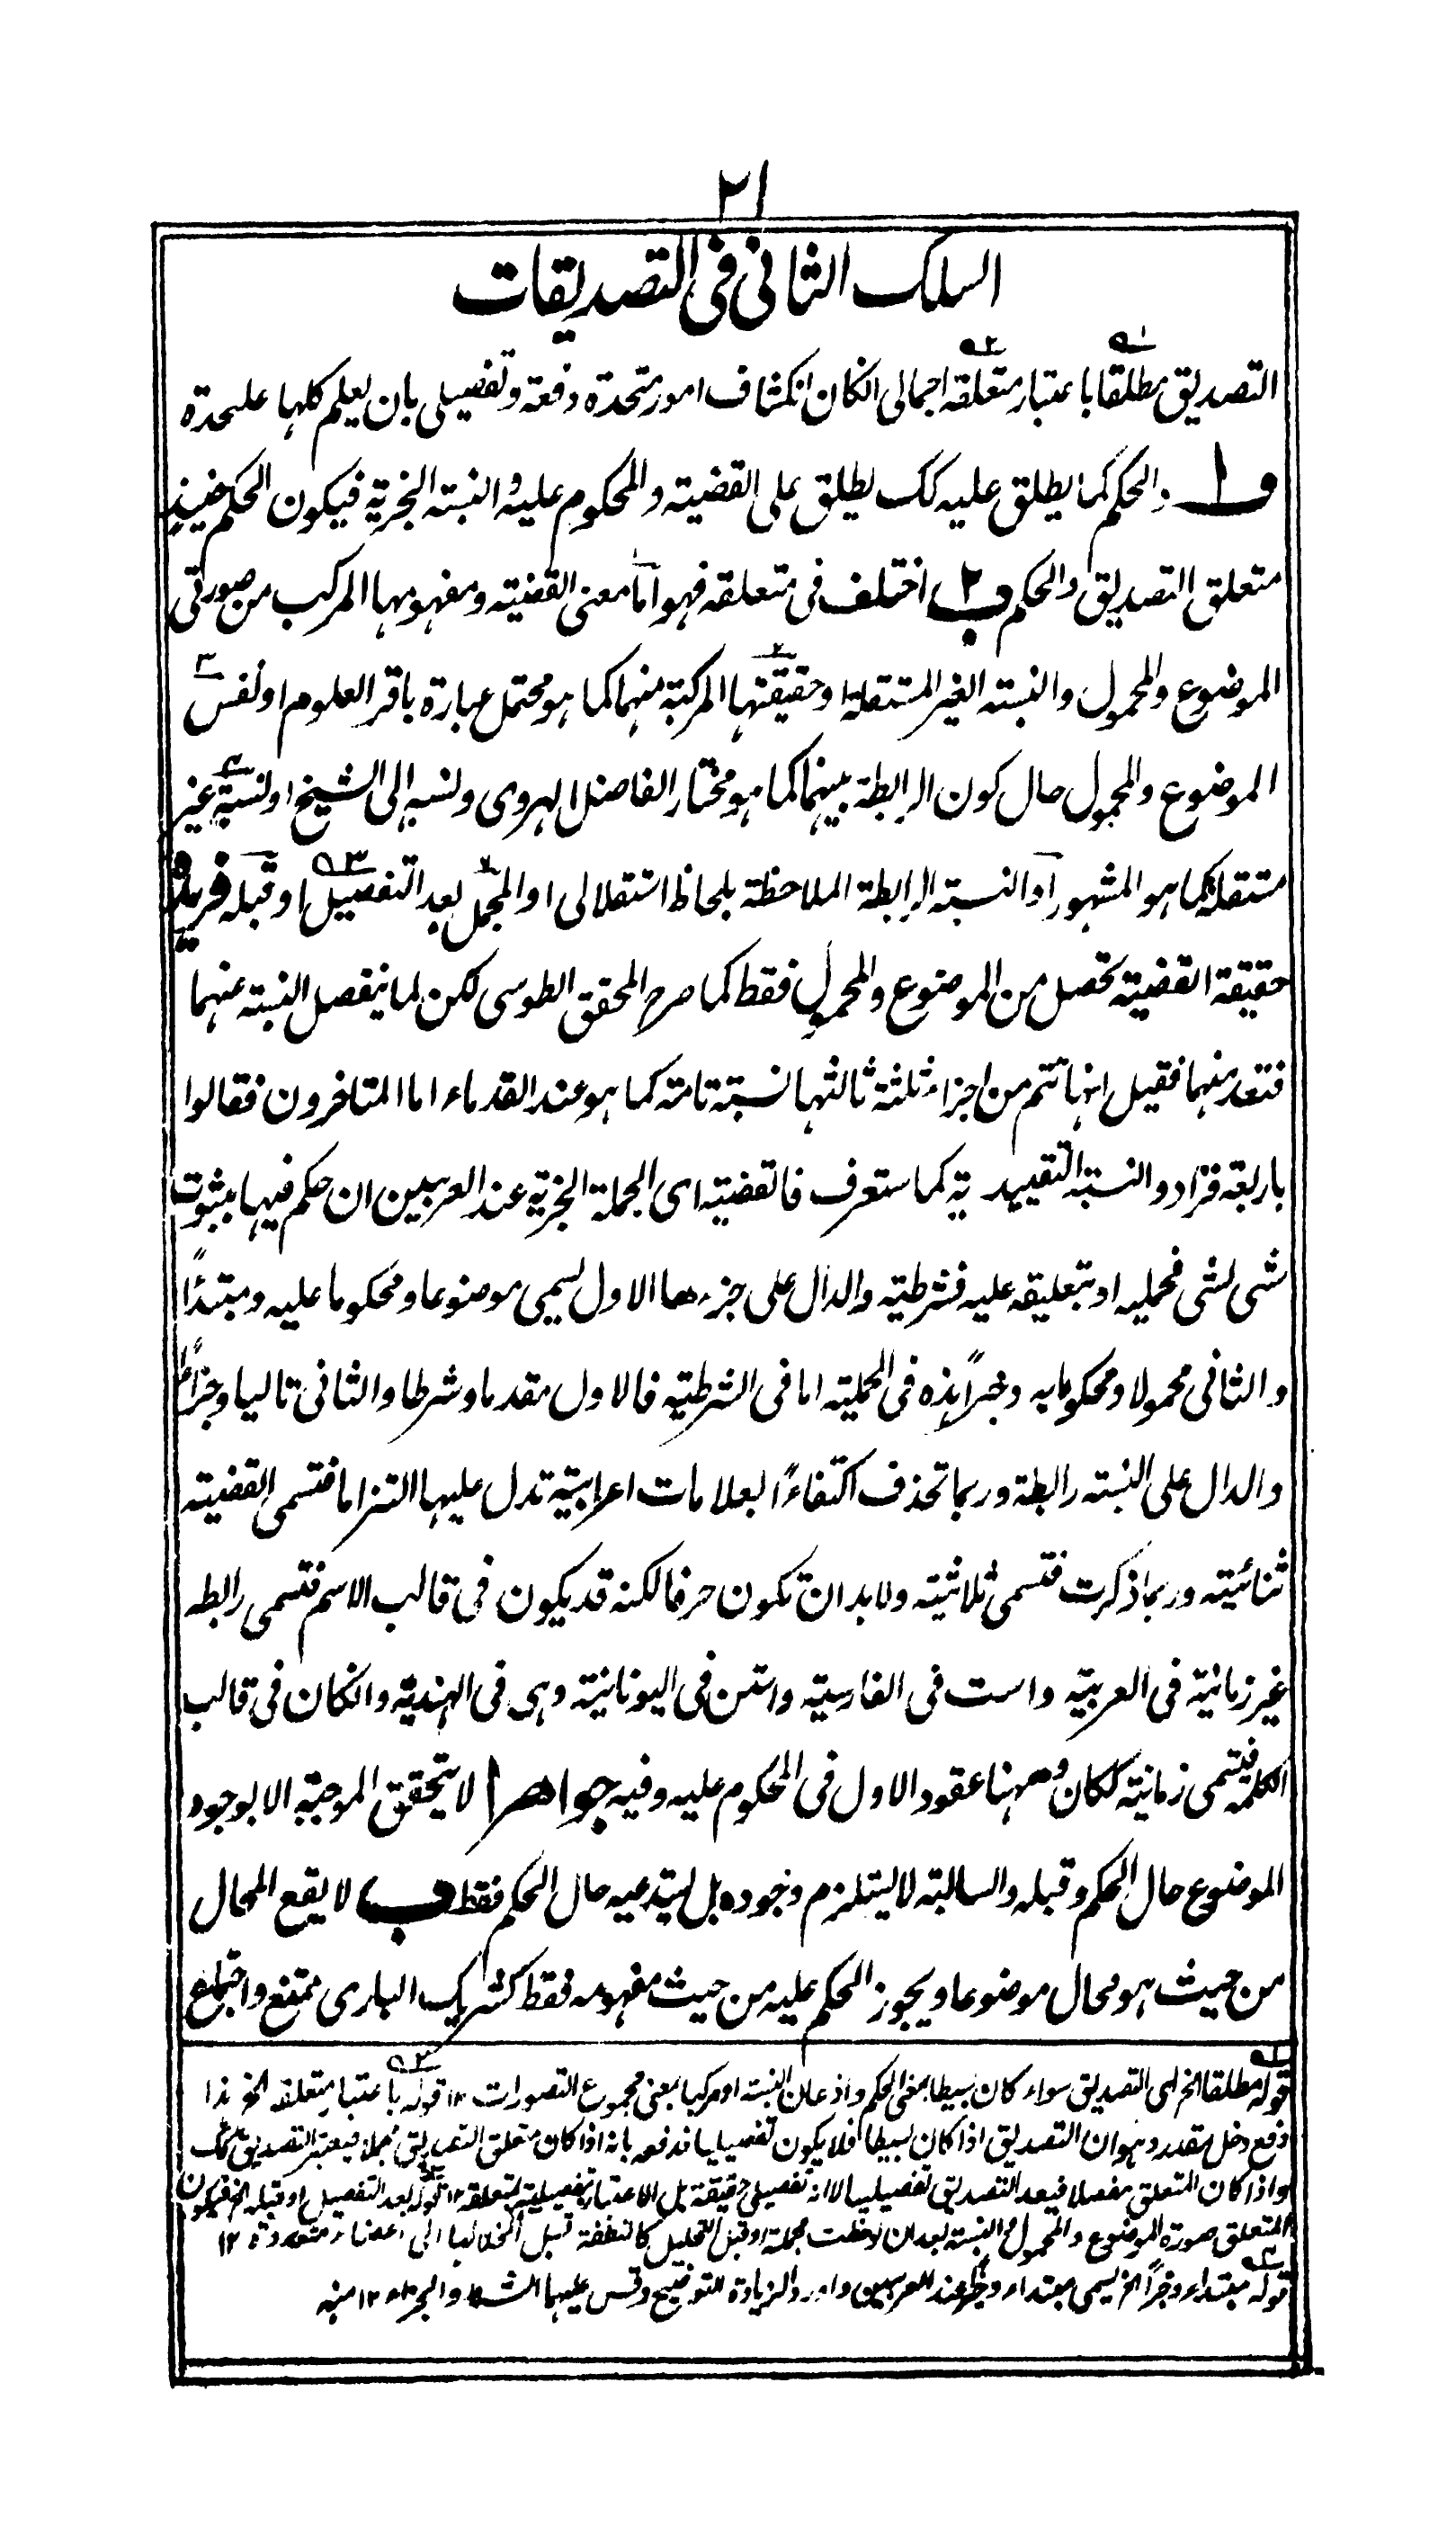 ٢١
السلك الثاني في التصديقات
التصديق مطلقا باعتبار متعلقه اجمالي انكان انكشاف امور متحدة دفعة وتفصيلي بان يعلم كلها علىحدة
وا والحكم كما يطلق عليه كك يطلق على القضيته والمحكوم عليه والنسبته الخبرية فيكون الحكم حينئذ
متعلق التصديق والحكم ب ٢ اختلف في متعلقه فهو اما معنى القضيته ومفهومها المركب من صورتي
الموضوع والمحمول والنسبته الغير المستقلة او حقيقتها المركبة منهما كما هو محتمل عبارة باقر العلوم او نفس
الموضوع والمحمول حال كون الرابطة بينهما كما هو مختار الفاضل الهروي ونسبه الى الشيخ او نسبة غير
مستقلة كما هو المشهور او النسبته الرابطة الملاحظة بلحاظ استقلالي او المجمل بعد التفصيل او قبله فريدة
حقيقة القضيته تحصل من الموضوع والمحمول فقط كما صرح المحقق الطوسي لكن لما ينفصل النسبته عنهما
فتعد منهما فقيل انها تتم من اجزاء ثلثة ثالثها نسبته تامته كما هو عند القدماء اما المتاخرون فقالوا
باربعة فزادوا النسبته التقييدية كما ستعرف فالقضيته اى الجملة الخبرية عند العربيين ان حكم فيها بثبوت
شى لشى فحمليه او بتعليقه عليه فشرطيته والدال على جزءها الاول يسمى موضوعا ومحكوما عليه ومبتدأ
والثاني محمولا ومحكوما به وخبراً هذه في الحمليته اما في الشرطيته فالاول مقدما وشرطا والثاني تاليا وجزاءً
والدال على النسبته رابطة وربما تحذف اكتفاءً بعلامات اعرابية تدل عليها التزاما فتسمى القضيته
ثنائيته وربما ذكرت فتسمى ثلاثيته ولا بد ان تكون حرفا لكنه قد يكون في قالب الاسم فتسمى رابطه
غير زمانية في العربية واست في الفارسية واستن في اليونانية وهى في الهندية وانكان في قالب
الكلمة فيتسمى زمانية ككان وههنا عقود الاول في المحكوم عليه وفيه جواهر ا لا يتحقق الموجبة الا بوجود
الموضوع حال الحكم وقبله والسالبته لا يستلزم وجوده بل يستدعيه حال الحكم فقط ب لا يقع المحال
من حيث هو محال موضوعا ويجوز الحكم عليه من حيث مفهومه فقط كشريك البارى ممتنع واجتماع
قوله مطلقا الخ اى التصديق سواء كان بسيطا بمعنى الحكم واذعان النسبته او مركبا بمعنى مجموع التصورات ١٢ قوله باعتبار متعلقه الخ هذا
دفع دخل مقدر وهو ان التصديق اذا كان بسيطا فلا يكون تفصيليا فدفعه بانه اذا كان متعلق التصديق مجملا فيعتبر التصديق
واذا كان المتعلق مفصلا فيعد التصديق تفصيليا لا انه تفصيلى حقيقة بل الاعتبار تفصيلية متعلقه ١٢ قوله بعد التفصيل او قبله الخ فيكون
المتعلق صورة الموضوع والمحمول والنسبته بعد ان لاحظت مجملة او قبل التحليل كالنطفة قبل انحلالها الى اعضاء متعددة ١٢
قوله مبتداء وخبراً الخ يسمى مبتداء وخبرا عند العربيين واورد لزيادة التوضيح وقس عليهما الشرط والجزاء ١٢ منه